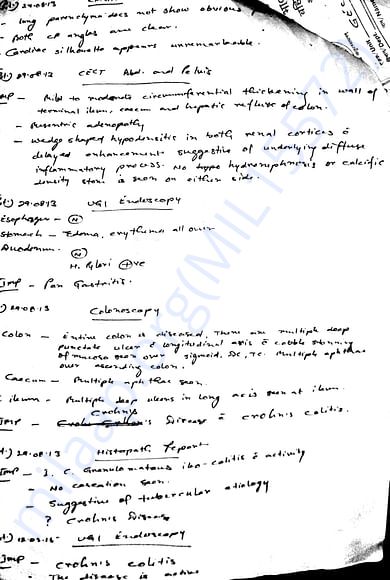 29.08.13
- long parenchyma does not show obvious
- Both CP angles are clear.
- Cardiac silhoutte appears unremarkable.
29.08.13 CECT Abd. and Pelvis
Imp - Mild to moderate circumferential thickening in wall of
terminal ileum, caecum and hepatic reflux of colon.
- Mesentric adenopathy
- wedge shaped hypodensitis in both renal cortices c̄
delayed enhancement suggestive of underlying diffuse
inflammatory process. No hydronephrosis or calcific
density stone is seen on either side.
29.08.13 UGI Endoscopy
Esophagus - (N)
Stomach - Edema, erythema all over
Duodenum - (N)
H. Pylori +ve
Imp - Pan Gastritis.
29.08.13 Colonoscopy
Colon - Entire colon is diseased. There are multiple deep
punctate ulcer c̄ longitudinal axis c̄ cobble stonning
of mucosa seen over sigmoid, DC, TC. Multiple aphthae
over ascending colon.
Caecum - Multiple aphthae seen.
ileum - Multiple deep ulcers in long axis seen at ileum.
Crohn's
Imp - Disease c̄ Crohn's Colitis.
29.08.13 Histopath Report
Imp - I. C. Granulomatous ileo-colitis c̄ activity
- No caseation seen.
- Suggestive of tubercular etiology
? Crohn's Disease
UGI Endoscopy
Imp - Crohn's colitis
The disease is active
milaap.org(MIL